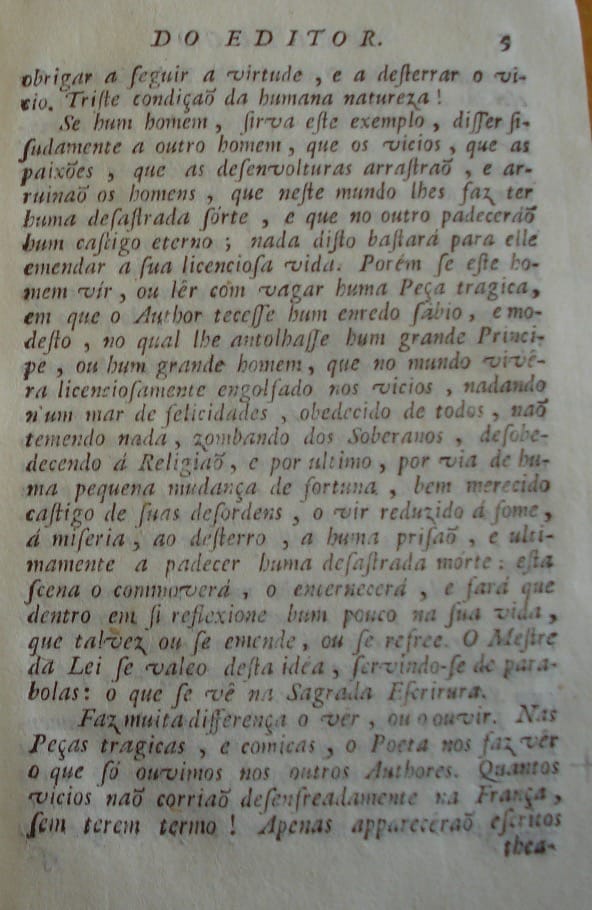 DO EDITOR. 5
obrigar a ſeguir a virtude , e a deſterrar o vi-
cio. Triſte condiçaõ da humana natureza !
Se hum homem , ſirva eſte exemplo , differ ſi-
ſudamente a outro homem , que os vicios , que as
paixões , que as deſenvolturas arraſtraõ , e ar-
ruinaõ os homens , que neſte mundo lhes faz ter
huma deſaſtrada sórte , e que no outro padeceráõ
hum caſtigo eterno ; nada diſto baſtará para elle
emendar a ſua licencioſa vida. Porém ſe eſte ho-
mem vír , ou lêr com vagar huma Peça tragica,
em que o Author teceſſe hum enredo ſábio , e mo-
deſto , no qual lhe antolhaſſe hum grande Princi-
pe , ou hum grande homem , que no mundo vivê-
ra licencioſamente engolfado nos vicios , nadando
n'um mar de felicidades , obedecido de todos , naõ
temendo nada , zombando dos Soberanos , deſobe-
decendo á Religiaõ, e por ultimo , por via de hu-
ma pequena mudança de fortuna , bem merecido
caſtigo de ſuas deſordens , o vir reduzido á fome,
á miſeria , ao deſterro , a huma priſaõ , e ulti-
mamente a padecer huma deſaſtrada mórte : eſta
ſcena o commoverá , o enternecerá , e fará que
dentro em ſi reflexione hum pouco na ſua vida ,
que talvez ou ſe emende, ou ſe refree. O Meſtre
da Lei ſe valeo deſta idéa , ſervindo-ſe de para-
bolas: o que ſe vê na Sagrada Eſcrirura.
Faz muita differença o vêr , ou o ouvir. Nas
Peças tragicas , e comicas , o Poeta nos faz vêr
o que ſó ouvimos nos outros Authores. Quantos
vicios naõ corriaõ deſenfreadamente na França ,
ſem terem termo ! Apenas apparecêraõ eſcritos
thea-